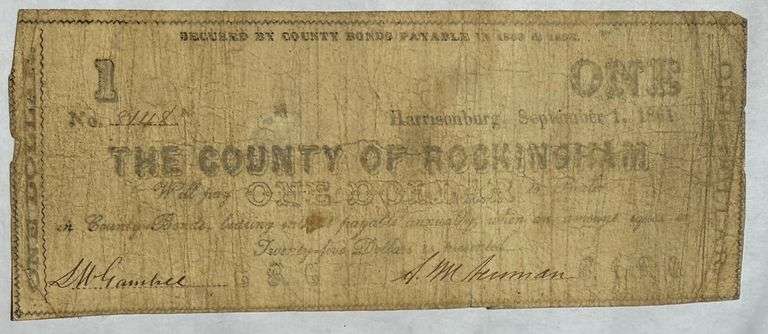 SECURED BY COUNTY BONDS PAYABLE IN
1 ONE
No. 8448 Harrisonburg, September 1, 1861
THE COUNTY OF ROCKINGHAM
Will pay ONE DOLLAR
in County Bonds, bearing interest payable annually when an amount equal to
Twenty-five Dollars is presented.
S M Gambill A. M. Newman
ONE DOLLAR
ONE DOLLAR